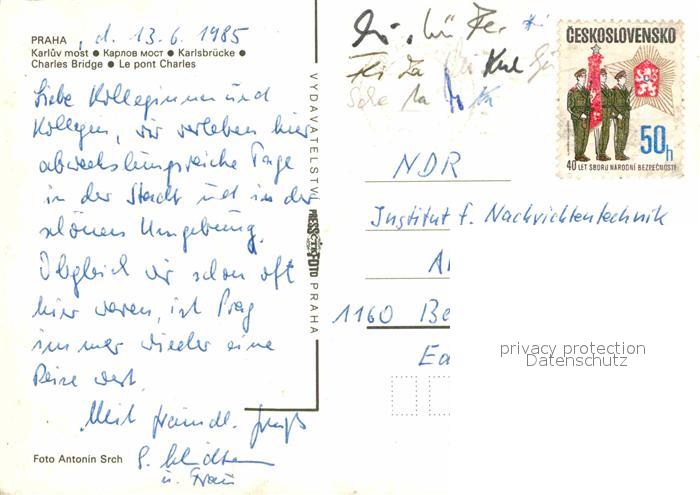 PRAHA , d. 13.6.1985
Karlův most ● Карлов мост ● Karlsbrücke ●
Charles Bridge ● Le pont Charles
Liebe Kolleginnen und
Kollegen, wir verleben hier
abwechslungsreiche Tage
in der Stadt und in der
schönen Umgebung.
Obgleich wir schon oft
hier waren, ist Prag
immer wieder eine
Reise wert.
Mit freundl. Gruß
u. Frau
Foto Antonín Srch
VYDAVATELSTVÍ PRESSFOTO PRAHA
ČESKOSLOVENSKO
50h
40 LET SBORU NÁRODNÍ BEZPEČNOSTI
NDR
Institut f. Nachrichtentechnik
1160 Be
privacy protection
Datenschutz